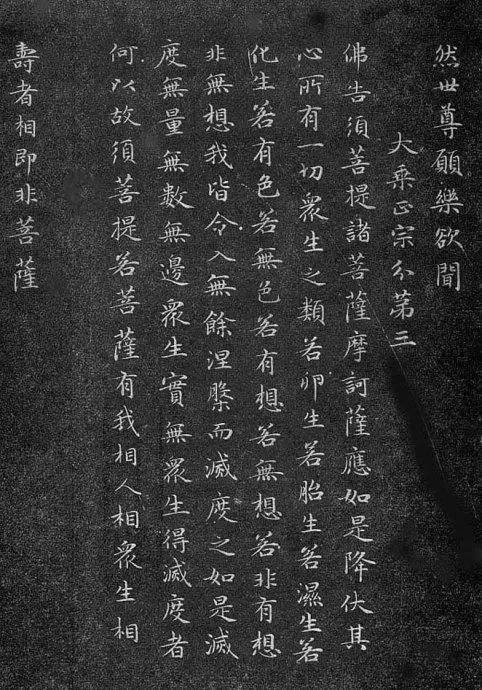 然世尊願樂欲聞
大乘正宗分第三
佛告須菩提諸菩薩摩訶薩應如是降伏其
心所有一切眾生之類若卵生若胎生若濕生若
化生若有色若無色若有想若無想若非有想
非無想我皆令入無餘涅槃而滅度之如是滅
度無量無數無邊眾生實無眾生得滅度者
何以故須菩提若菩薩有我相人相眾生相
壽者相即非菩薩